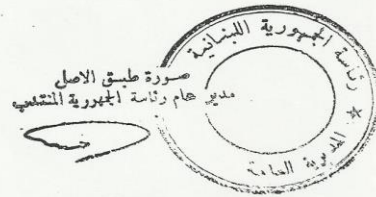 صورة طبق الاصل
مدير عام رئاسة الجمهورية المنتدب
رئاسة الجمهورية اللبنانية
المديرية العامة